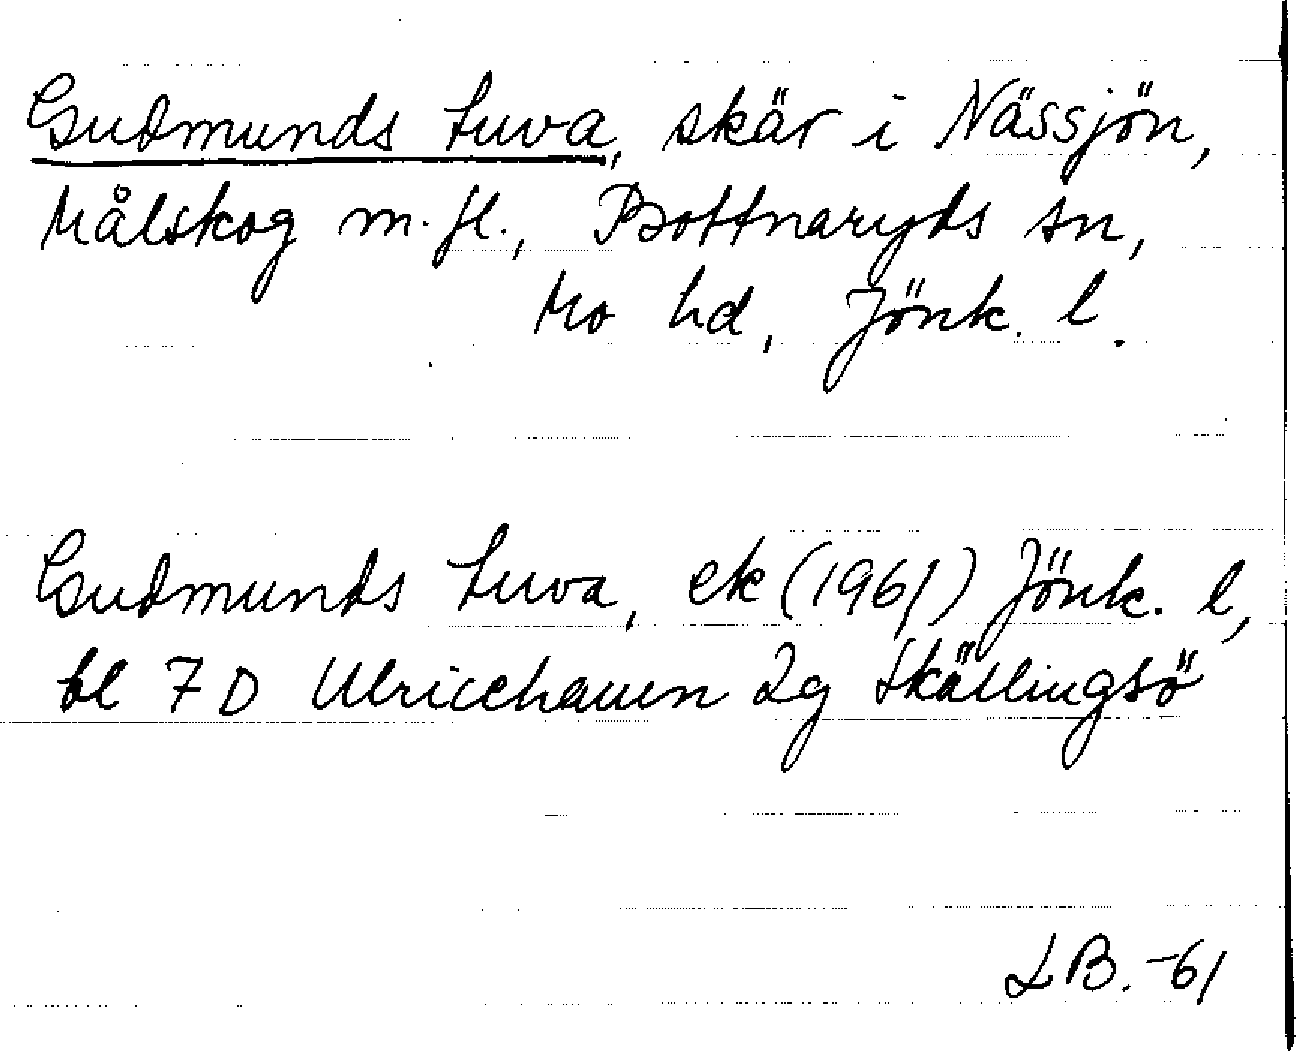 Gudmunds Luva, skär i Nässjön,
Målskog m.fl., Bottnaryds sn,
Mo hd, Jönk. l.
Gudmunds Luva, ek (1961) Jönk. l,
bl 7D Ulricehamn 2g Skällingsö
LB. -61